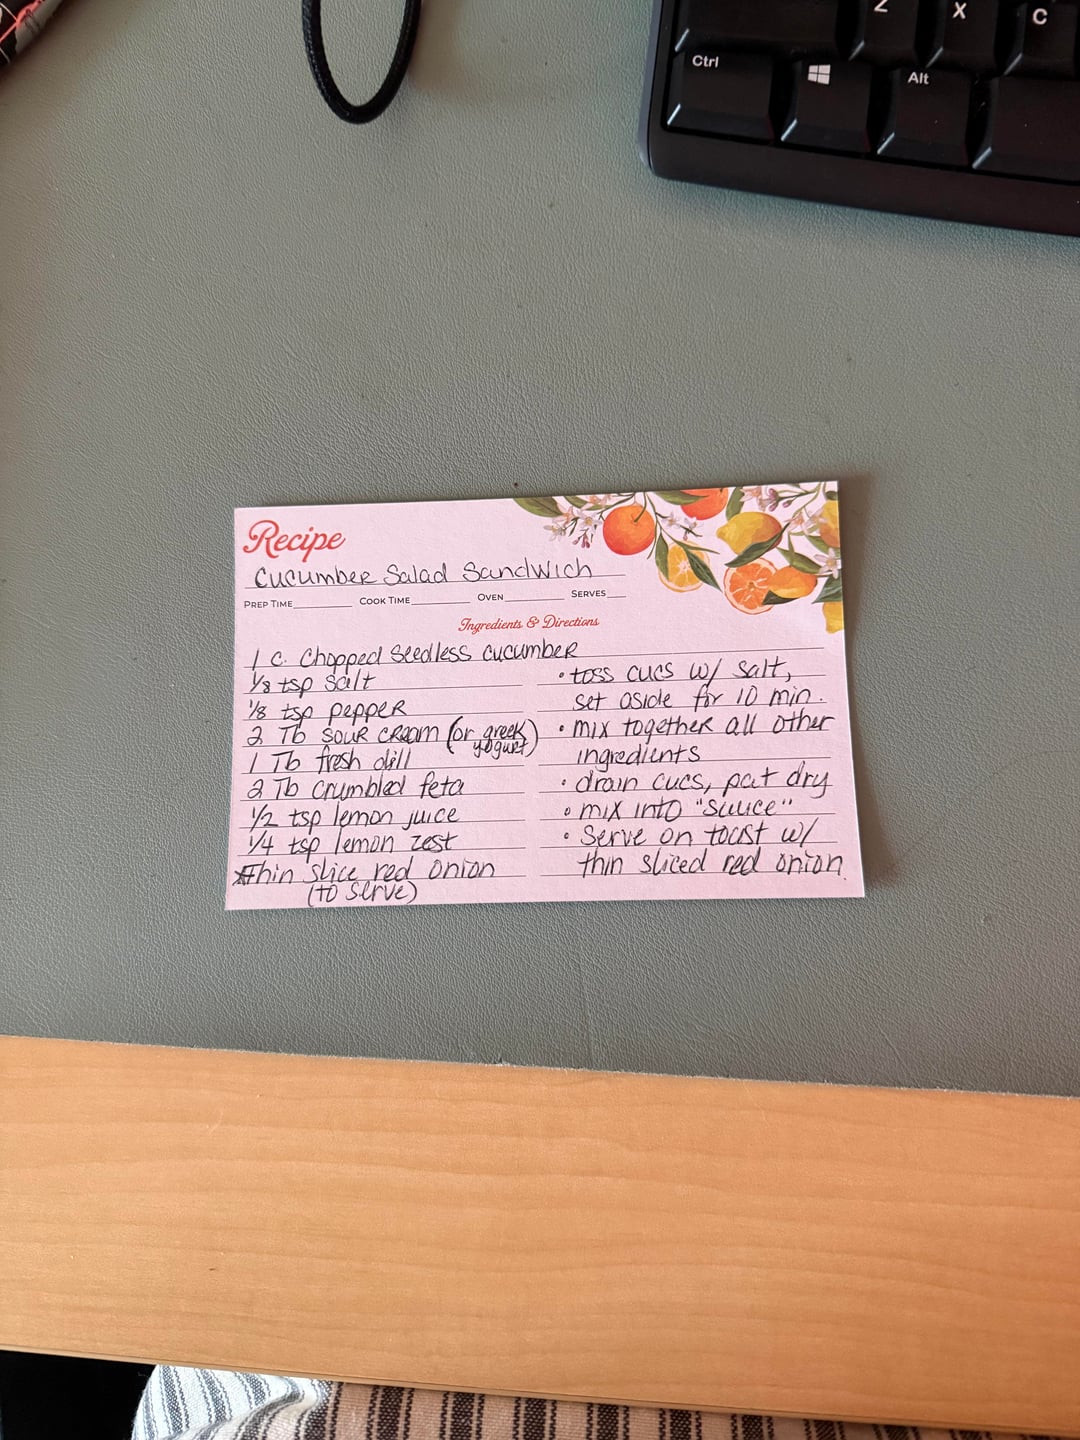 Z X C
Ctrl Alt
Recipe
Cucumber Salad Sandwich
PREP TIME COOK TIME OVEN SERVES
Ingredients & Directions
1 c. chopped seedless cucumber
1/8 tsp salt
1/8 tsp pepper
2 Tb sour cream (or greek
yogurt)
1 Tb fresh dill
2 Tb crumbled feta
1/2 tsp lemon juice
1/4 tsp lemon zest
*thin slice red onion
(to serve)
• toss cucs w/ salt,
set aside for 10 min.
• mix together all other
ingredients
• drain cucs, pat dry
• mix into "sauce"
• Serve on toast w/
thin sliced red onion.